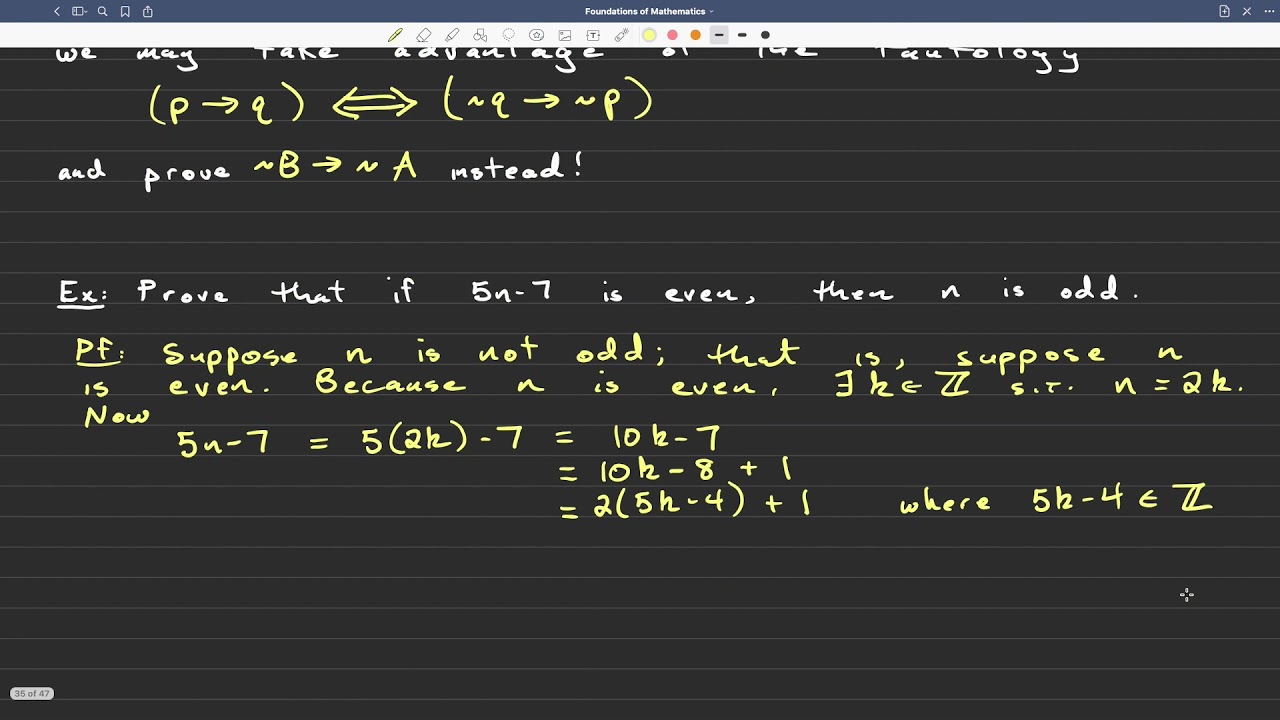 Foundations of Mathematics
we may take advantage of the tautology
(p → q) ⟺ (~q → ~p)
and prove ~B → ~A instead!
Ex: Prove that if 5n-7 is even, then n is odd.
Pf: Suppose n is not odd; that is, suppose n
is even. Because n is even, ∃ k ∈ ℤ s.t. n = 2k.
Now
5n-7 = 5(2k)-7 = 10k-7
= 10k-8 + 1
= 2(5k-4) + 1 where 5k-4 ∈ ℤ
35 of 47